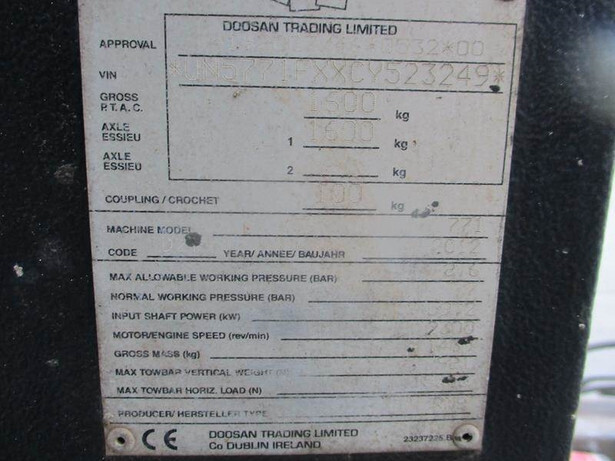 DOOSAN TRADING LIMITED
APPROVAL 532*00
VIN
GROSS 1600 kg
P.T.A.C.
AXLE 1600
ESSIEU 1 kg
AXLE
ESSIEU 2 kg
COUPLING / CROCHET 100 kg
MACHINE MODEL 771
CODE YEAR/ ANNEE/ BAUJAHR 2012
MAX ALLOWABLE WORKING PRESSURE (BAR)
NORMAL WORKING PRESSURE (BAR)
INPUT SHAFT POWER (kW)
MOTOR/ENGINE SPEED (rev/min)
GROSS MASS (kg)
MAX TOWBAR VERTICAL WEIGHT
MAX TOWBAR HORIZ. LOAD (N)
PRODUCER/ HERSTELLER TYPE
CE DOOSAN TRADING LIMITED
Co DUBLIN IRELAND